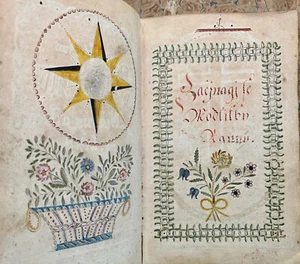 Začjnagj se
Modlitby
Rannj.